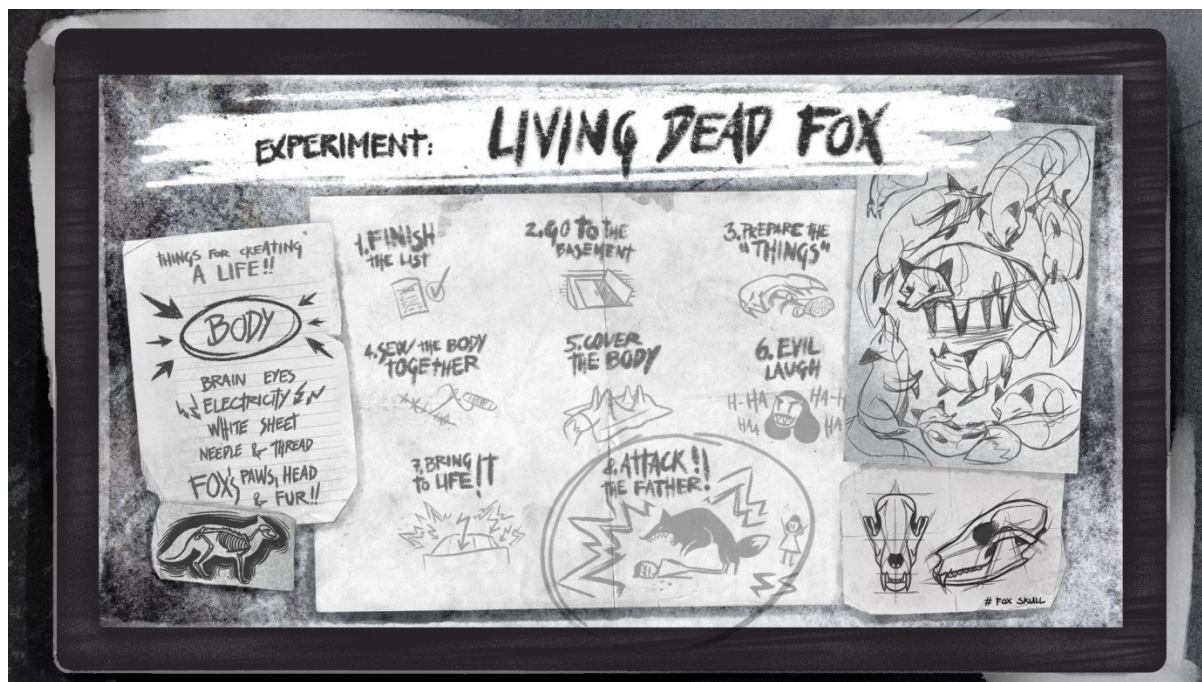 EXPERIMENT: LIVING DEAD FOX
THINGS FOR CREATING
A LIFE!!
BODY
BRAIN EYES
ELECTRICITY
WHITE SHEET
NEEDLE & THREAD
FOX'S PAWS, HEAD
& FUR!!
1. FINISH
THE LIST
2. GO TO THE
BASEMENT
3. PREPARE THE
"THINGS"
4. SEW THE BODY
TOGETHER
5. COVER
THE BODY
6. EVIL
LAUGH
H-HA HA-H
HA HA
7. BRING
TO LIFE!!
8. ATTACK!!
THE FATHER!
# FOX SKULL